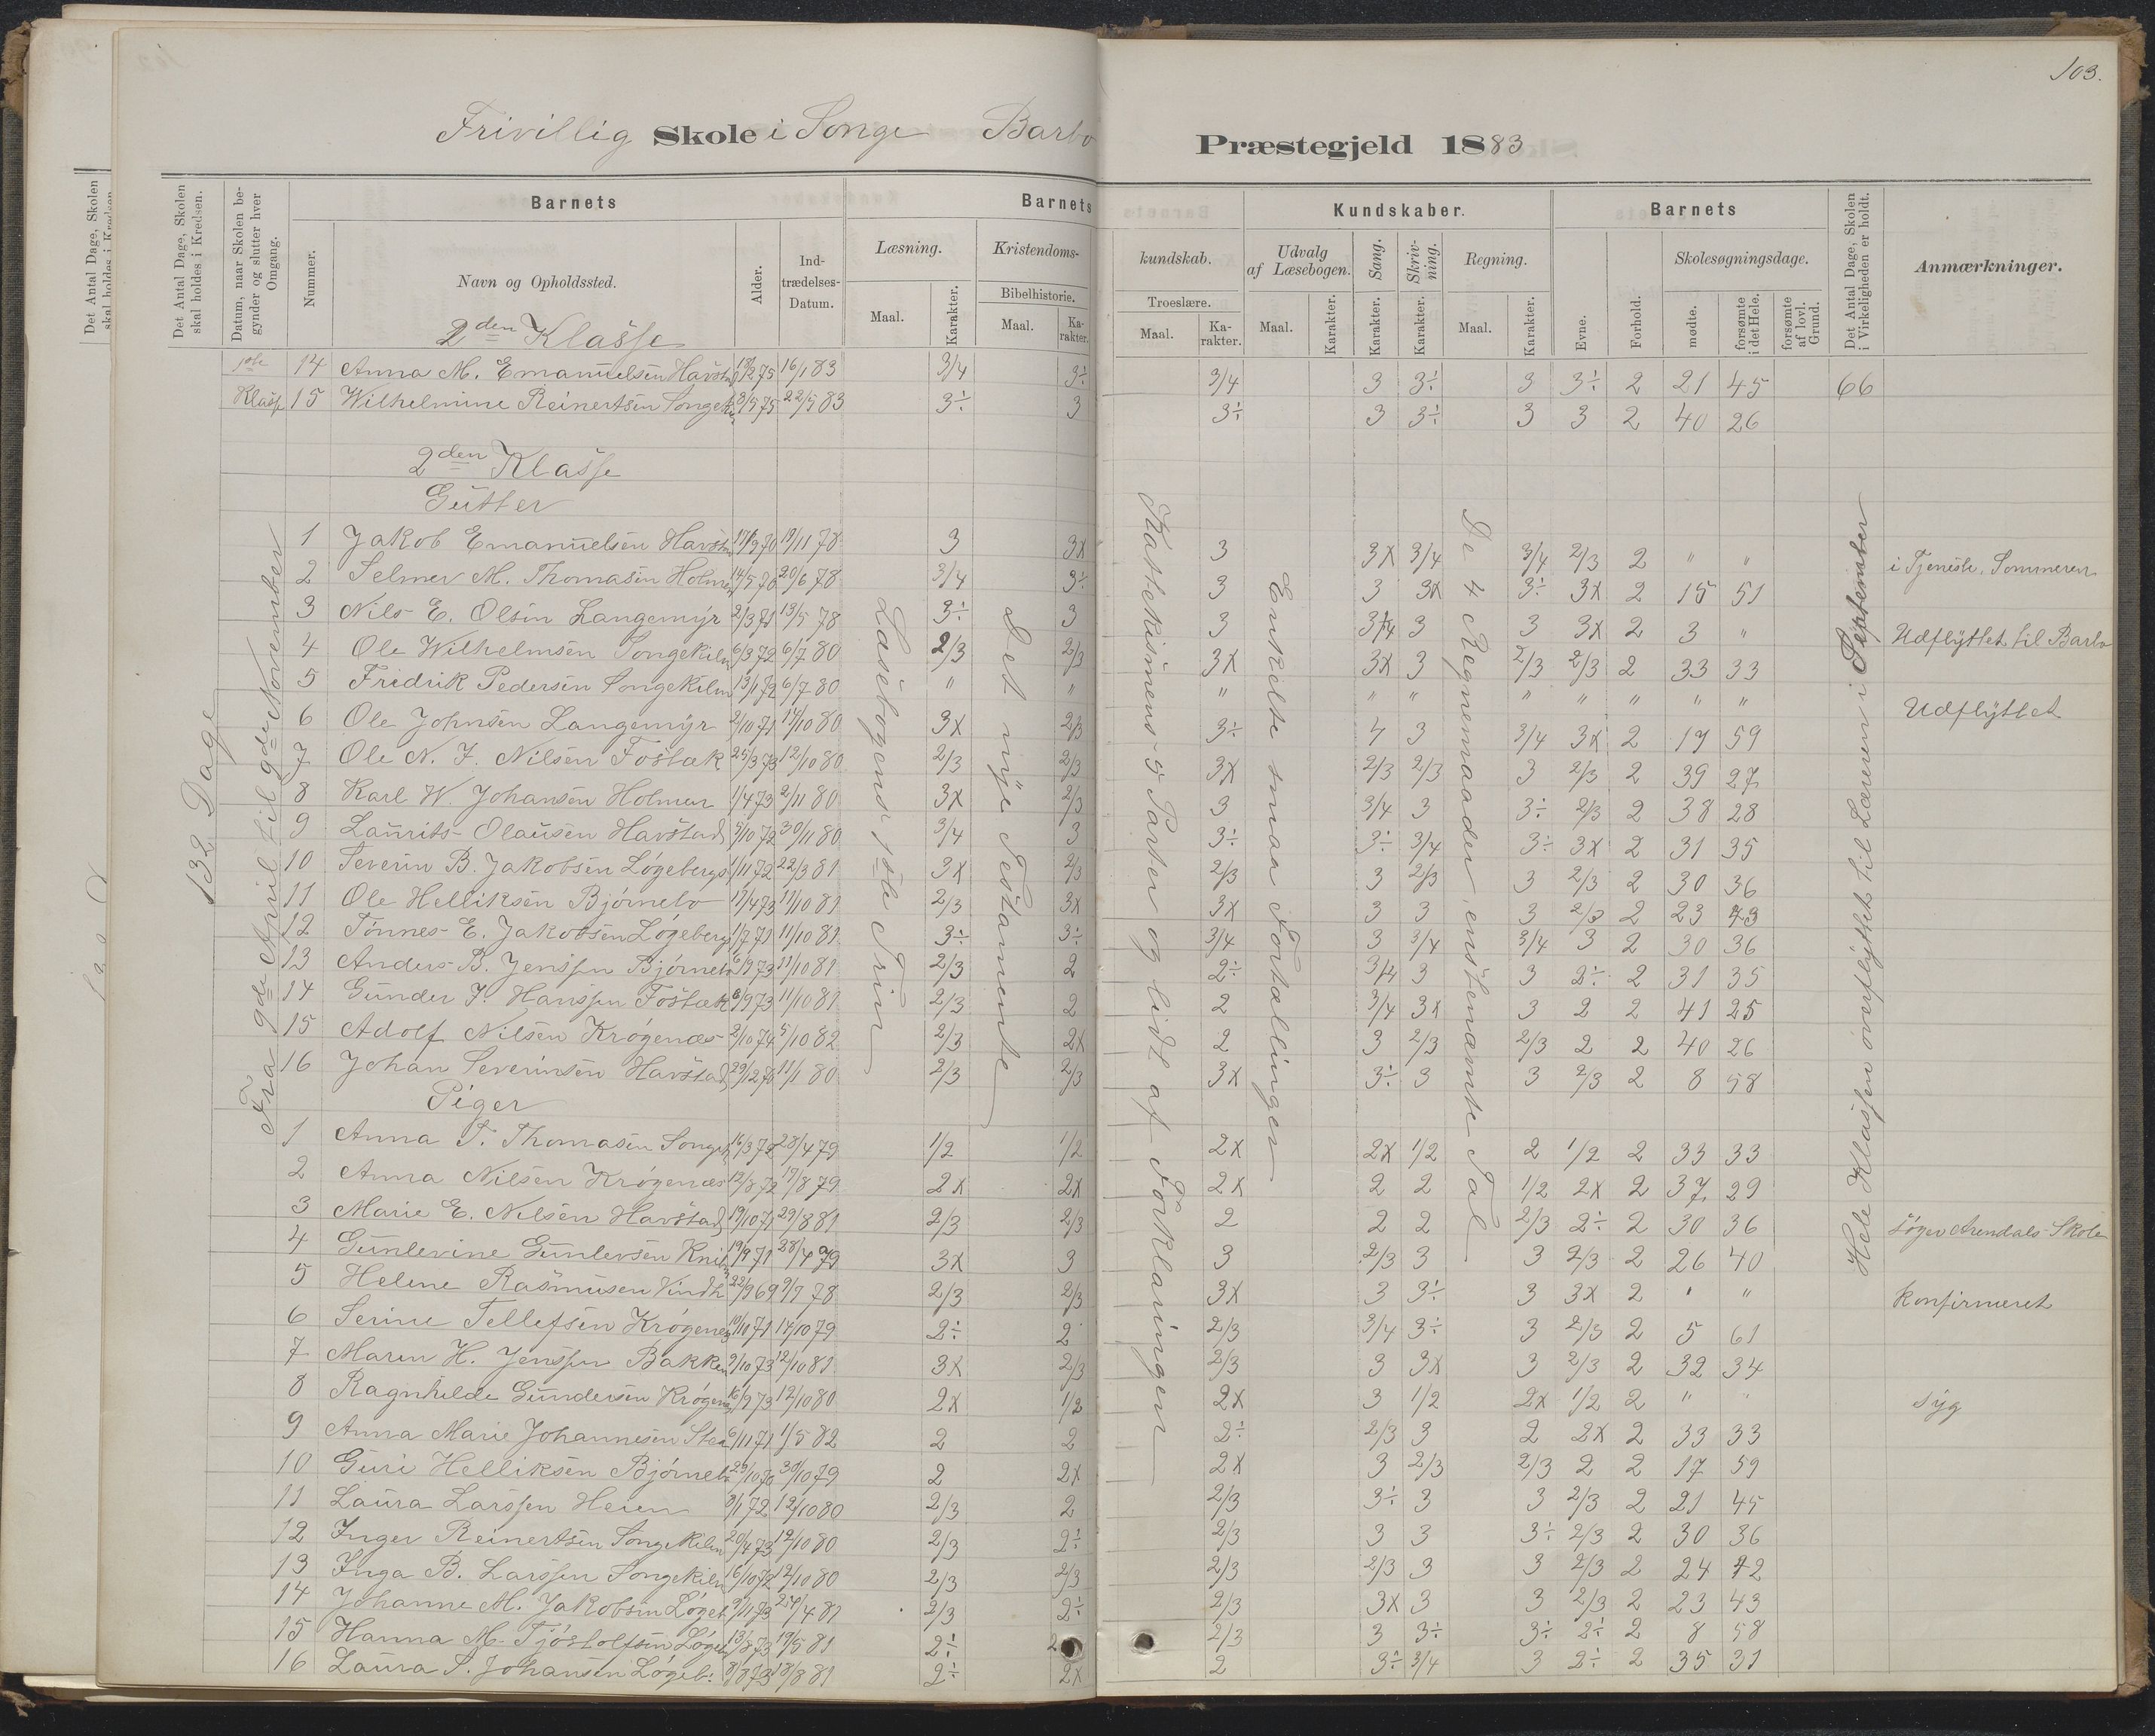 103.
Frivillig Skole i Songe Barbo Præstegjeld 1883
Det Antal Dage, Skolen skal holdes i Kredsen.
Det Antal Dage, Skolen skal holdes i Kredsen.
Datum, naar Skolen begynder og slutter hver Omgang.
Barnets
Nummer.
Navn og Opholdssted.
Alder.
Indtrædelses-Datum.
Barnets Kundskaber.
Læsning.
Maal.
Karakter.
Kristendomskundskab.
Bibelhistorie.
Maal.
Karakter.
Troeslære.
Maal.
Karakter.
Udvalg af Læsebogen.
Maal.
Karakter.
Sang.
Karakter.
Skrivning.
Karakter.
Regning.
Maal.
Karakter.
Barnets
Evne.
Forhold.
Skolesøgningsdage.
mødte.
forsømte i det Hele.
forsømte af lovl. Grund.
Det Antal Dage, Skolen i Virkeligheden er holdt.
Anmærkninger.
2den Klasse
1ste 14 Anna M. Emanuelsen Havstad 75 16/1 83 3/4 3÷ 3/4 3 3÷ 3 3÷ 2 21 45 66
Klasse 15 Wilhelmine Reinertsen Songek. 3/5 75 22/5 83 3÷ 3 3÷ 3 3÷ 3 3 2 40 26
2den Klasse
Gutter
132 Dage
Fra 9de April til 9de November
Læsebogens 1ste Trin
Det nye Testamente
Kattekismens 5 Parter og lidt af Forklaringen
Enkelte smaa Fortællinger
De 4 Regnemaader, ensbenævnte Tal
Hele Klassen overflyttet til Læreren i September
1 Jakob Emanuelsen Havst. 17/9 70 19/11 78 3 3x 3 3x 3/4 3/4 2/3 2 " " i Tjeneste, Sommeren
2 Selmer M. Thomasen Holmen 14/5 70 20/6 78 3/4 3÷ 3 3 3x 3÷ 3x 2 15 51
3 Nils E. Olsen Langemyr 2/3 71 13/5 78 3÷ 3 3 3/4 3 3 3x 2 3 " Udflyttet til Barbo
4 Ole Wilhelmsen Songekiln 6/3 72 6/7 80 2/3 2/3 3x 3x 3 2/3 2/3 2 33 33
5 Fredrik Pedersen Songekiln 13/1 72 6/7 80 " " " " " " " " " " Udflyttet
6 Ole Johnsen Langemyr 2/10 71 14/10 80 3x 2/3 3÷ 4 3 3/4 3x 2 17 59
7 Ole N. J. Nilsen Fosbæk 25/3 73 12/10 80 2/3 2/3 3x 2/3 2/3 3 2/3 2 39 27
8 Karl W. Johansen Holmen 1/4 73 2/11 80 3x 2/3 3 3/4 3 3÷ 2/3 2 38 28
9 Laurits Olausen Havstad 5/10 72 30/11 80 3/4 3 3÷ 3÷ 3/4 3÷ 3x 2 31 35
10 Severin B. Jakobsen Løgebergs. 1/11 72 22/3 81 3x 2/3 2/3 3 2/3 3 2/3 2 30 36
11 Ole Helliksen Bjørnebo 17/4 73 11/10 81 2/3 3x 3x 3 3 3 2/3 2 23 43
12 Tønnes E. Jakobsen Løgeberg 1/7 71 11/10 81 3÷ 3÷ 3/4 3 3/4 3/4 3 2 30 36
13 Anders B. Jenssen Bjørnebo 6/9 73 11/10 81 2/3 2 2÷ 3/4 3 3 2÷ 2 31 35
14 Gunder J. Hanssen Fosbæk 8/9 73 11/10 81 2/3 2 2 3/4 3x 3 2 2 41 25
15 Adolf Nilsen Krøgenæs 2/10 74 5/10 82 2/3 2x 2 3 2/3 2/3 2 2 40 26
16 Johan Severinsen Havstad 29/12 70 11/1 80 2/3 2/3 3x 3÷ 3 3 2/3 2 8 58
Piger
1 Anna T. Thomasen Songek. 16/3 72 28/4 79 1/2 1/2 2x 2x 1/2 2 1/2 2 33 33
2 Anna Nilsen Krøgenæs 12/8 72 17/8 79 2x 2x 2x 2 2 1/2 2x 2 37 29
3 Marie E. Nilsen Havstad 19/10 71 29/8 81 2/3 2/3 2 2 2 2/3 2÷ 2 30 36 Søger Arendals Skole
4 Gunlevine Gunlevsen 19/9 71 28/4 79 3x 3 3 2/3 3 3 2/3 2 26 40
5 Helene Rasmusen Vindh. 22/9 69 9/7 78 2/3 2/3 3x 3 3÷ 3 3x 2 " " konfirmeret
6 Serine Tellefsen Krøgenes 10/10 71 14/10 79 2÷ 2 2/3 3/4 3÷ 3 2/3 2 5 61
7 Maren H. Jenssen Bakken 9/10 73 12/10 81 3x 2/3 2/3 3 3x 3 2/3 2 32 34
8 Ragnhilde Gundersen Krøgenes 16/9 73 12/10 80 2x 1/2 2x 3 1/2 2x 1/2 2 " " syg
9 Anna Marie Johannesen 6/11 71 1/5 82 2 2 2÷ 2/3 3 2 2x 2 33 33
10 Guri Helliksen Bjørnebo 29/10 70 30/10 79 2 2x 2x 3 2/3 2/3 2 2 17 59
11 Laura Larssen Heien 8/1 72 12/10 80 2/3 2 2/3 3÷ 3 3 2/3 2 21 45
12 Inger Reinertsen Songekiln 20/4 73 12/10 80 2/3 2÷ 2/3 3 3 3÷ 2/3 2 30 36
13 Inga B. Larssen Songekiln 16/10 72 12/10 80 2/3 2/3 2/3 2/3 3 3 2/3 2 24 42
14 Johanne M. Jakobsen Løgeb. 9/11 73 25/4 81 2/3 2÷ 2/3 3x 3 3 2/3 2 23 43
15 Hanna M. Tjøstolfsen Løgeb. 13/8 73 19/5 81 2÷ 2 2/3 3 3÷ 3÷ 2÷ 2 8 58
16 Laura S. Johansen Løgeb: 8/8 73 18/8 81 2÷ 2x 2 3÷ 3/4 3 2÷ 2 35 31